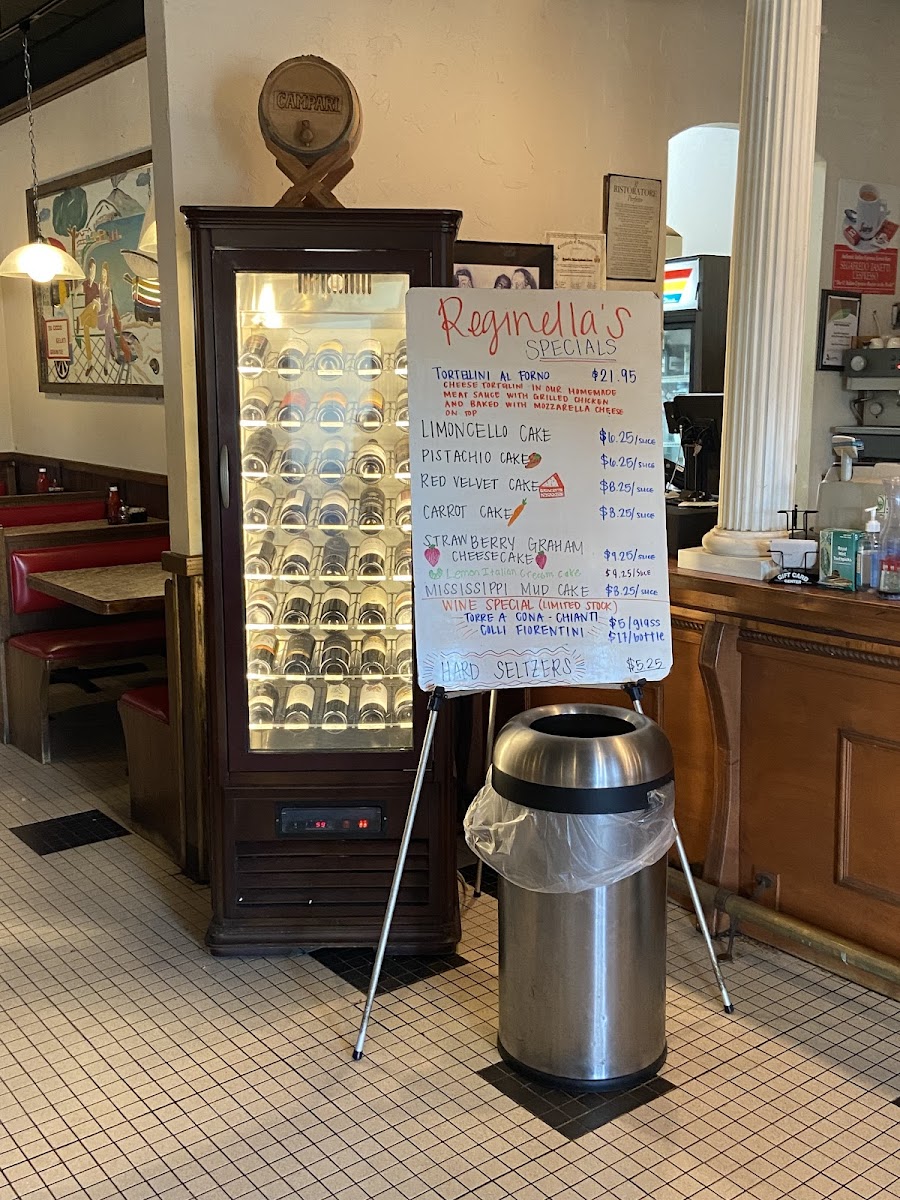 CAMPARI
RISTORATORE
SEGAFREDO ZANETTI
ESPRESSO
Reginella's
SPECIALS
TORTELLINI AL FORNO $21.95
CHEESE TORTELINI IN OUR HOMEMADE
MEAT SAUCE WITH GRILLED CHICKEN
AND BAKED WITH MOZZARELLA CHEESE
ON TOP
LIMONCELLO CAKE $6.25/SLICE
PISTACHIO CAKE $6.25/SLICE
RED VELVET CAKE $8.25/SLICE
CARROT CAKE $8.25/SLICE
STRAWBERRY GRAHAM
CHEESECAKE $9.25/SLICE
Lemon Italian Cream Cake $9.25/SLICE
MISSISSIPPI MUD CAKE $8.25/SLICE
WINE SPECIAL (LIMITED STOCK)
TORRE A CONA - CHIANTI $5/glass
COLLI FIORENTINI $17/bottle
HARD SELTZERS $5.25
GIFT CARD
CENTER